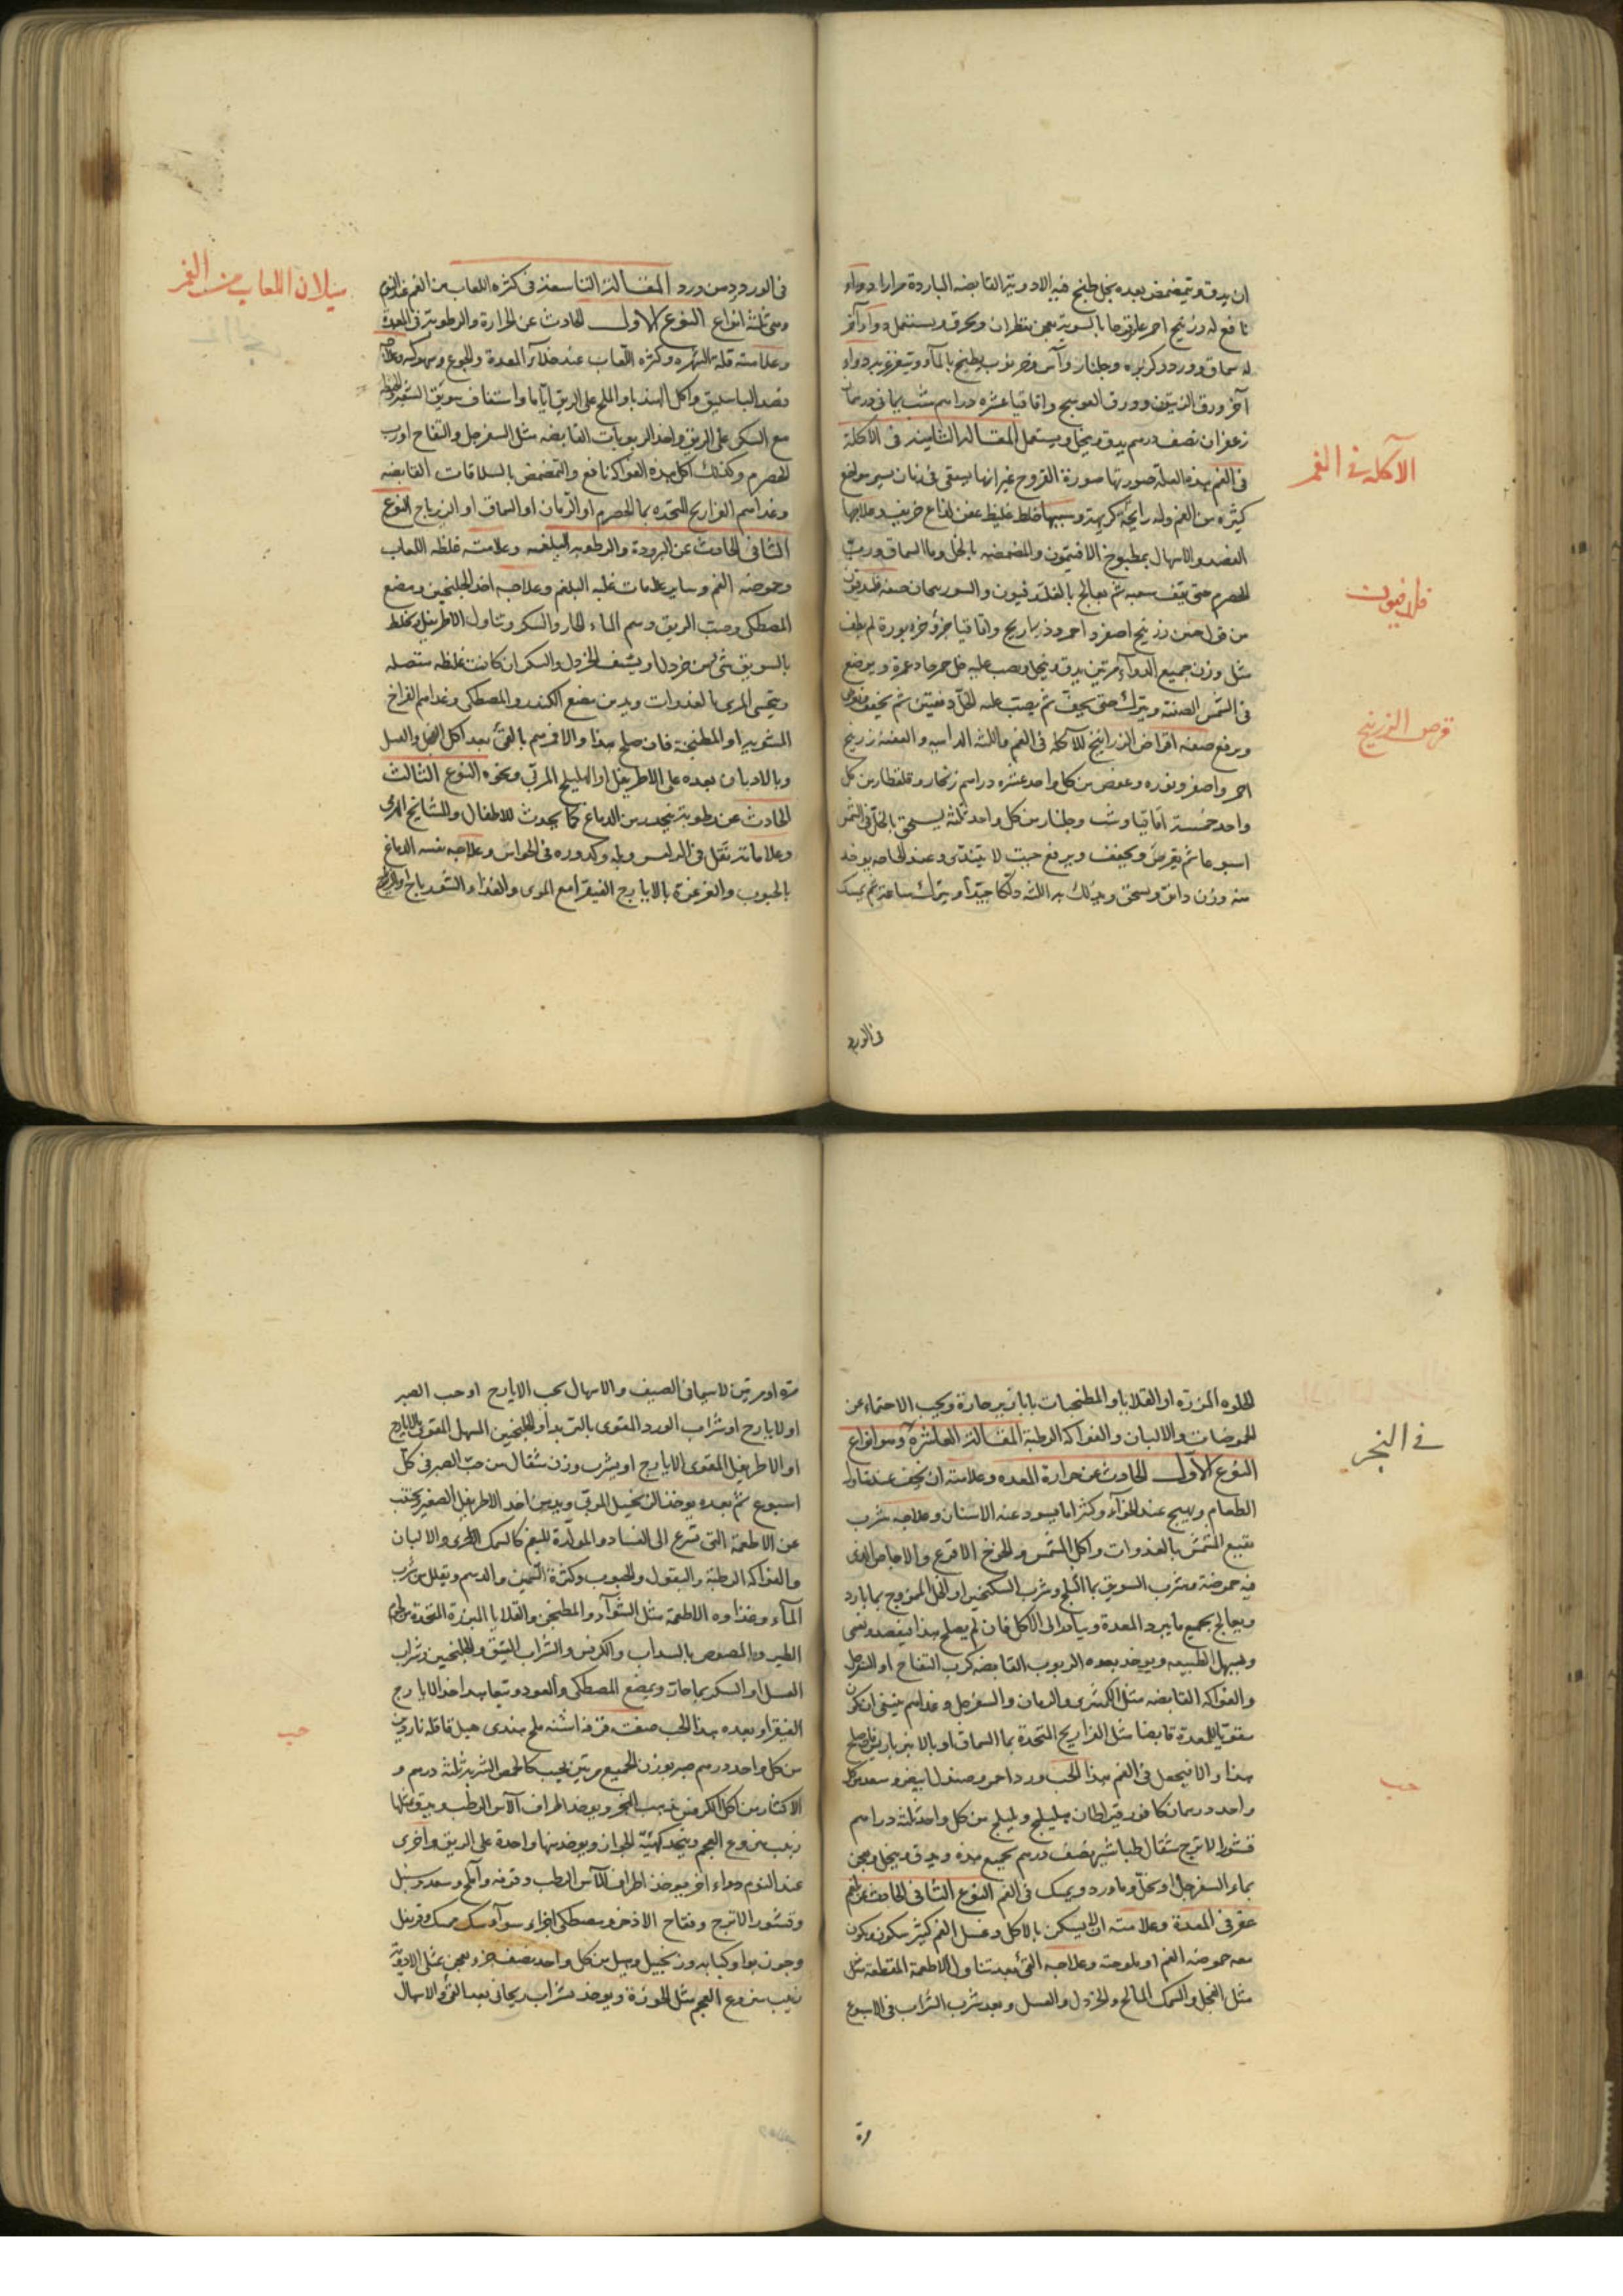 ان يدق ويتمضمض بعده بخل طبخ فيه الادوية القابضه الباردة مرارا دواء
نافع له زرنيخ احمر عاقرقرحا بالسوية يعجن بقطران ويحرق ويستعمل دواء آخر
له سماق وورد وكزبره وجلنار وآس وخرنوب يطبخ بالماء ويتغرغر به دواء
آخر ورق الزيتون وورق العوسج واقاقيا عشره دراهم شب يمانى درهمان
زعفران نصف درهم يدق وينخل ويستعمل المقالة الثامنة فى الآكلة
الآكله فى الفم
فى الفم هذه العلة صورتها صورة القروح غير انها يسعى فى زمان يسير مواضع
كثيره من الفم وله رايحة كريهة وسببها خلط غليظ عفن لذاع حريف وعلاجها
الفصد والاسهال بمطبوخ الافتيمون والمضمضه بالخل وماء السماق ورب
الحصرم حتى يقف سعيه ثم يعالج بالفلدفيون والسوريحان صفة فلدفيون
من زرنيخ اصفر واحمر وذراريح واقاقيا جزؤ جزء نورة لم يطف
مثل وزن جميع الدواء مرتين يدق وينخل ويصب عليه خل خمر حاد غمره ويوضع
فى الشمس الصيفه ويترك حتى يجف ثم يصب عليه الخل دفعتين ثم يجفف
قرص الزرنيخ
ويرفع صفة اقراض الزرانيخ للآكله فى الفم واللثه الداميه والعفنه زرنيخ
احمر واصفر ونوره وعفص من كل واحد عشره دراهم زنجار وقلقطار من كل
واحد خمسة اقاقيا وشب وجلنار من كل واحد ثلثه يسحق بالخل فى الشمس
اسبوعا ثم يقرص ويجفف ويرفع حيث لا يتندى وعند الحاجه يوخذ
منه وزن دانق ويسحق ويدلك به اللثه دلكا جيدا ويترك ساعة ثم يمسك
فى الورد
فى الورد دهن ورد المقالة التاسعة فى كثره اللعاب من الفم عند النوم
سيلان اللعاب من الفم
وهى ثلثة انواع النوع الاول الحادث عن الحرارة والرطوبة فى المعدة
وعلامته قلة الشهوه وكثره اللعاب عند خلاء المعدة والجوع وسهوكه وعلاجه
فصد الباسليق واكل الهندبا والملح على الريق اياما واستفاف سويق الشعير
مع السكر على الريق واخذ الربوبات القابضه مثل السفرجل والتفاح او رب
الحصرم وكذلك اكل هذه الفواكه نافع والتمضمض بالسلاقات القابضه
وغذاهم الفراريج المتخذه بماء الحصرم او الرمان او السماق او الزرباج النوع
الثانى الحادث عن البرودة والرطوبه البلغميه وعلامته غلظ اللعاب
وحموضه الفم وساير علامات غلبه البلغم وعلاجه اخذ الجلنجبين ومضغ
المصطكى وحب الريق وشم الماء الحار والسكر وتناول الاطريفل يخلط
بالسويق شئ من خردل او يستف الخردل والسكر ان كانت غليظه متصله
ويتحسى المرى بالغدوات ويدمن مضغ الكندر والمصطكى وغذاهم الفراخ
المشويه او المطبخنة فان صلح هذا والا فرهم بالقئ بعد اكل الفجل والعسل
وبالادمان بعده على الاطريفل او الهليلج المربى ونحوه النوع الثالث
الحادث عن رطوبة ينحدر من الدماغ كما يحدث للاطفال والمشايخ الهرمى
وعلاماته ثقل فى الراس وبله وكدوره فى الحواس وعلاجه تنقيه الدماغ
بالحبوب والغرغرة بالايارج الفيقرا مع المرى والغذاء الشفدباج
الحلوه المزره او القلايا والمطبخات بابازير حارة ويجب الاحتماء عن
الحموضات والالبان والفواكه الرطبة المقالة العاشرة وهو انواع
فى البخر
النوع الاول الحادث عن حرارة المعده وعلامته ان يخف عند تناول
الطعام ويهيج عند الخواء وكثيرا ما يسود عنه الاسنان وعلاجه شرب
نقيع المشمش بالغدوات واكل المشمش والخوخ الاقرع والاجاص الذى
فيه حموضة وشرب السويق بماء الثلج وشرب السكنجبين او الخل الممزوج بماء بارد
ويعالج بجميع ما يبرد المعدة ويبادر الى الاكل فان لم يصلح هذا فيفصد ونقى
ويسهل الطبيعه ويوخذ بعده الربوب القابضه كرب التفاح او السفرجل
والفواكه القابضه مثل الكمثرى والرمان والسفرجل وغذاهم ينبغى ان يكون
مقويا للمعدة قابضا مثل الفراريج المتخذة بماء السماق او بالانبرباريس فان صلح
حب
هذا والا فيجعل فى الفم هذا الحب ورد احمر وصندل ابيض وسعد من كل
واحد درهمان كافور قيراطان هليلج وبليلج من كل واحد ثلثة دراهم
قشور الاترج مثقال طباشير نصف درهم يجمع هذه ويدق وينخل ويعجن
بماء السفرجل او بخل وماورد ويمسك فى الفم النوع الثانى الحادث عن بلغم
عفن فى المعدة وعلامته ان لا يسكن بالاكل وغسل الفم كثير سكون ويكون
معه حموضه الفم او ملوحته وعلاجه القئ بعد تناول الاطعمة المقطعه مثل
مثل الفجل والسمك المالح والخردل والعسل وبعد شرب الشراب فى الاسبوع
مرة
مرة او مرتين لاسيما فى الصيف والاسهال بحب الايارج او حب الصبر
او الايارج او شراب الورد المقوى بالتربد او الجلنجبين المسهل المقوى بالايارج
او الاطريفل المقوى بالايارج او يشرب وزن مثقال من حب الصبر فى كل
اسبوع ثم بعده يوخذ الزنجبيل المربى ويدمن اخذ الاطريفل الصغير ويجتنب
عن الاطعمة التى تسرع الى الفساد والمولدة للبلغم كالسمك الطرى والالبان
والفواكه الرطبة والبقول والحبوب وكثرة السمين والدسم ويقلل من شرب
الماء وغذاوه الاطعمة مثل الشواء والمطجن والقلايا المبزرة المتخذة من لحم
الطير والمصوص بالسداب والكرفس والشراب العتيق والجلنجبين وشراب
العسل او السكر بماء حار ويمضغ المصطكى والعود ويتعاهد اخذ الايارج
حب
الفيقرا وبعده هذا الحب صفته قرفه اشنه ملح هندى هيل قاقله نارمشك
من كل واحد درهم صبر بوزن الجميع مرتين يحبب كالحمص الشربة ثلثة درهم و
الاكثار من اكل الكرفس يذهب البخر ويوخذ اطراف الآس الرطب ويدق مثلها
زبيب منزوع العجم ويتخذ كهيئة الجوز ويوخذ منها واحدة على الريق واخرى
عند النوم دواء اخر يوخذ اطراف الآس الرطب وقرفه واملج وسعد وسنبل
وقشور الاترج وفقاح الاذخر ومصطكى اجزاء سواء سك مسك وقرنفل
وجوزبوا وكبابه وزنجبيل وهيل من كل واحد نصف جزء يعجن بمثل الادوية
زبيب منزوع العجم مثل الجوزة ويوخذ بشراب ريحانى بعد القئ والاسهال